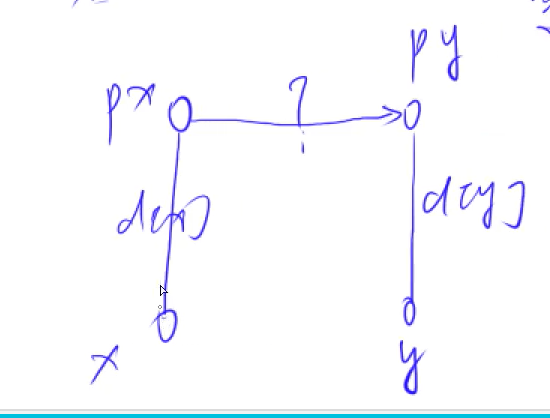 py
px ?
d[x] d[y]
x y